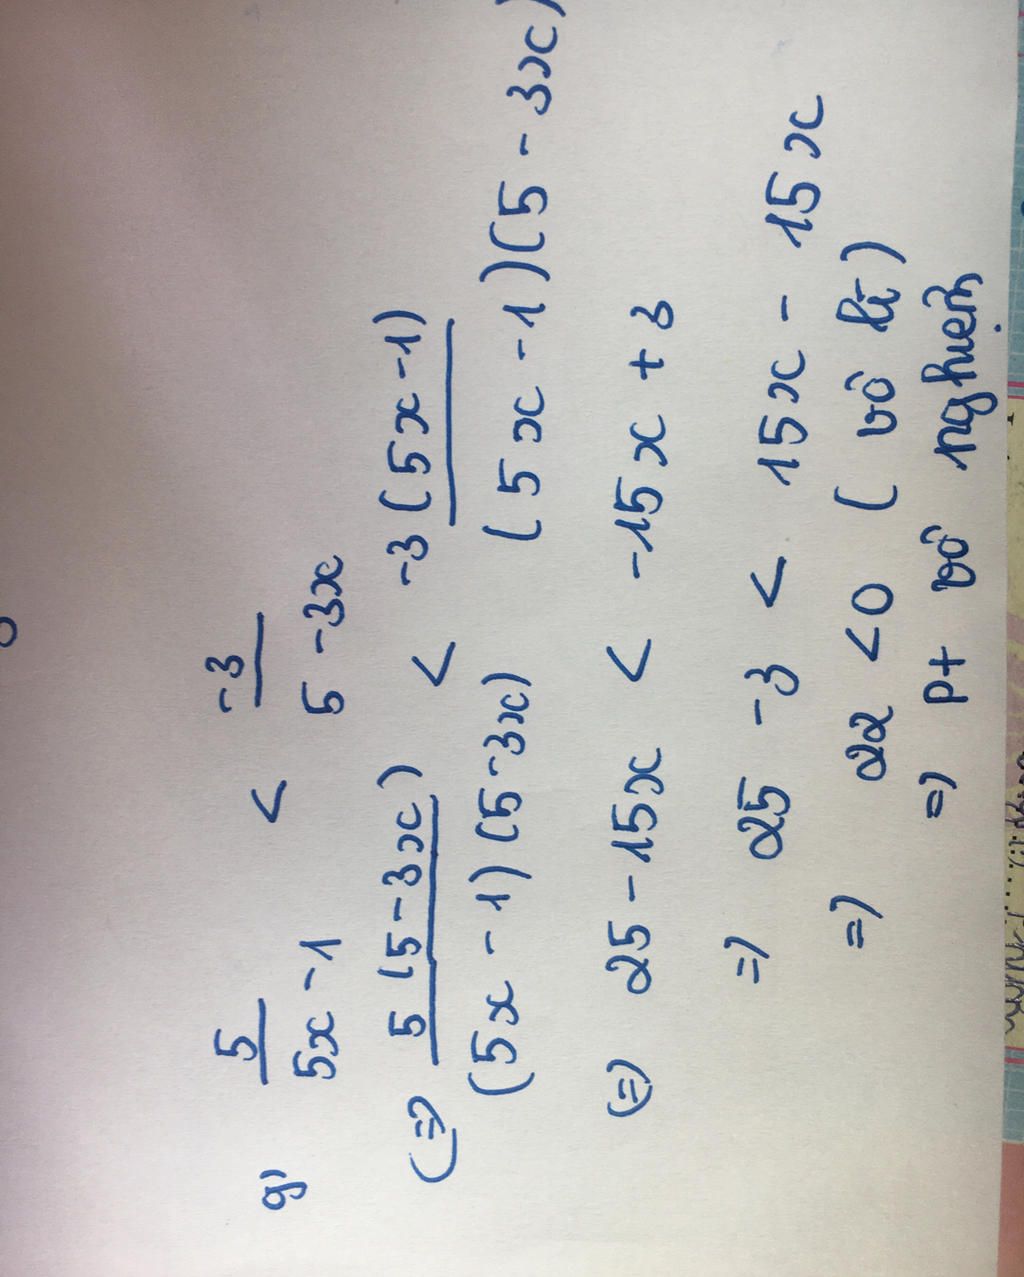 g) 5/(5x - 1) < -3/(5 - 3x)
(=) 5(5 - 3x)/((5x - 1)(5 - 3x)) < -3(5x - 1)/((5x - 1)(5 - 3x)
(=) 25 - 15x < -15x + 3
=) 25 - 3 < 15x - 15x
=) 22 < 0 (vô lí)
=) pt vô nghiệm